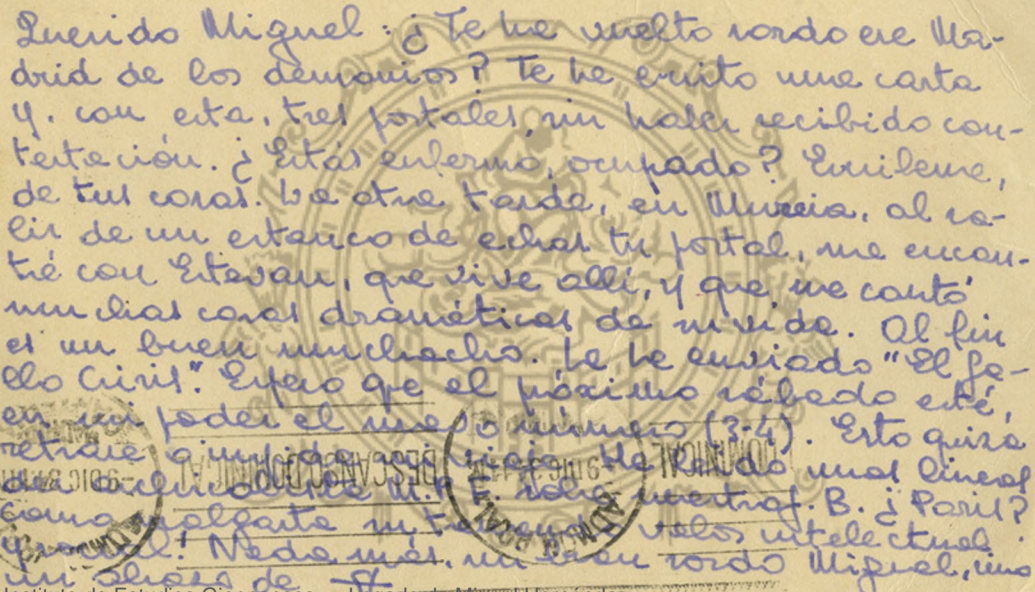 Querido Miguel: ¿Te ha vuelto sordo ese Ma-
drid de los demonios? Te he escrito una carta
y, con esta, tres postales, sin haber recibido con-
testación. ¿Estás enfermo, ocupado? Escríbeme,
de tus cosas. La otra tarde, en Murcia, al sa-
lir de un estanco de echar tu postal, me encon-
tré con Estevan, que vive allí, y que me contó
muchas cosas dramáticas de su vida. Al fin
es un buen muchacho. Le he enviado "El Ga-
llo Crisis". Espero que el próximo sábado esté,
en mi poder el nuevo número (3-4). Esto quizá
retrase mi viaje. He leído unas líneas
de sobre nuestro J. B. ¿París?
malgasta su valor intelectual
Nada más, mi buen sordo Miguel, una
un abrazo de
DESCANSO DOMINICAL
DOMINICAL
9 DIC 34
Instituto de Estudios Giennenses. Legado de Miguel Hernández